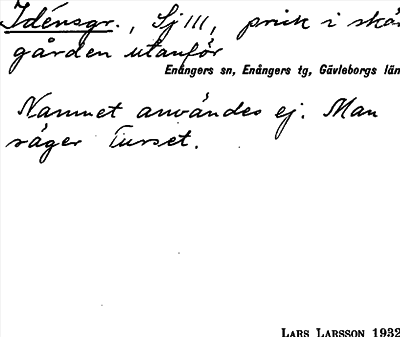 Idénsgr., Sj III, prick i skär
gården utanför
Enångers sn, Enångers tg, Gävleborgs län
Namnet användes ej. Man
säger Turset.
LARS LARSSON 1932